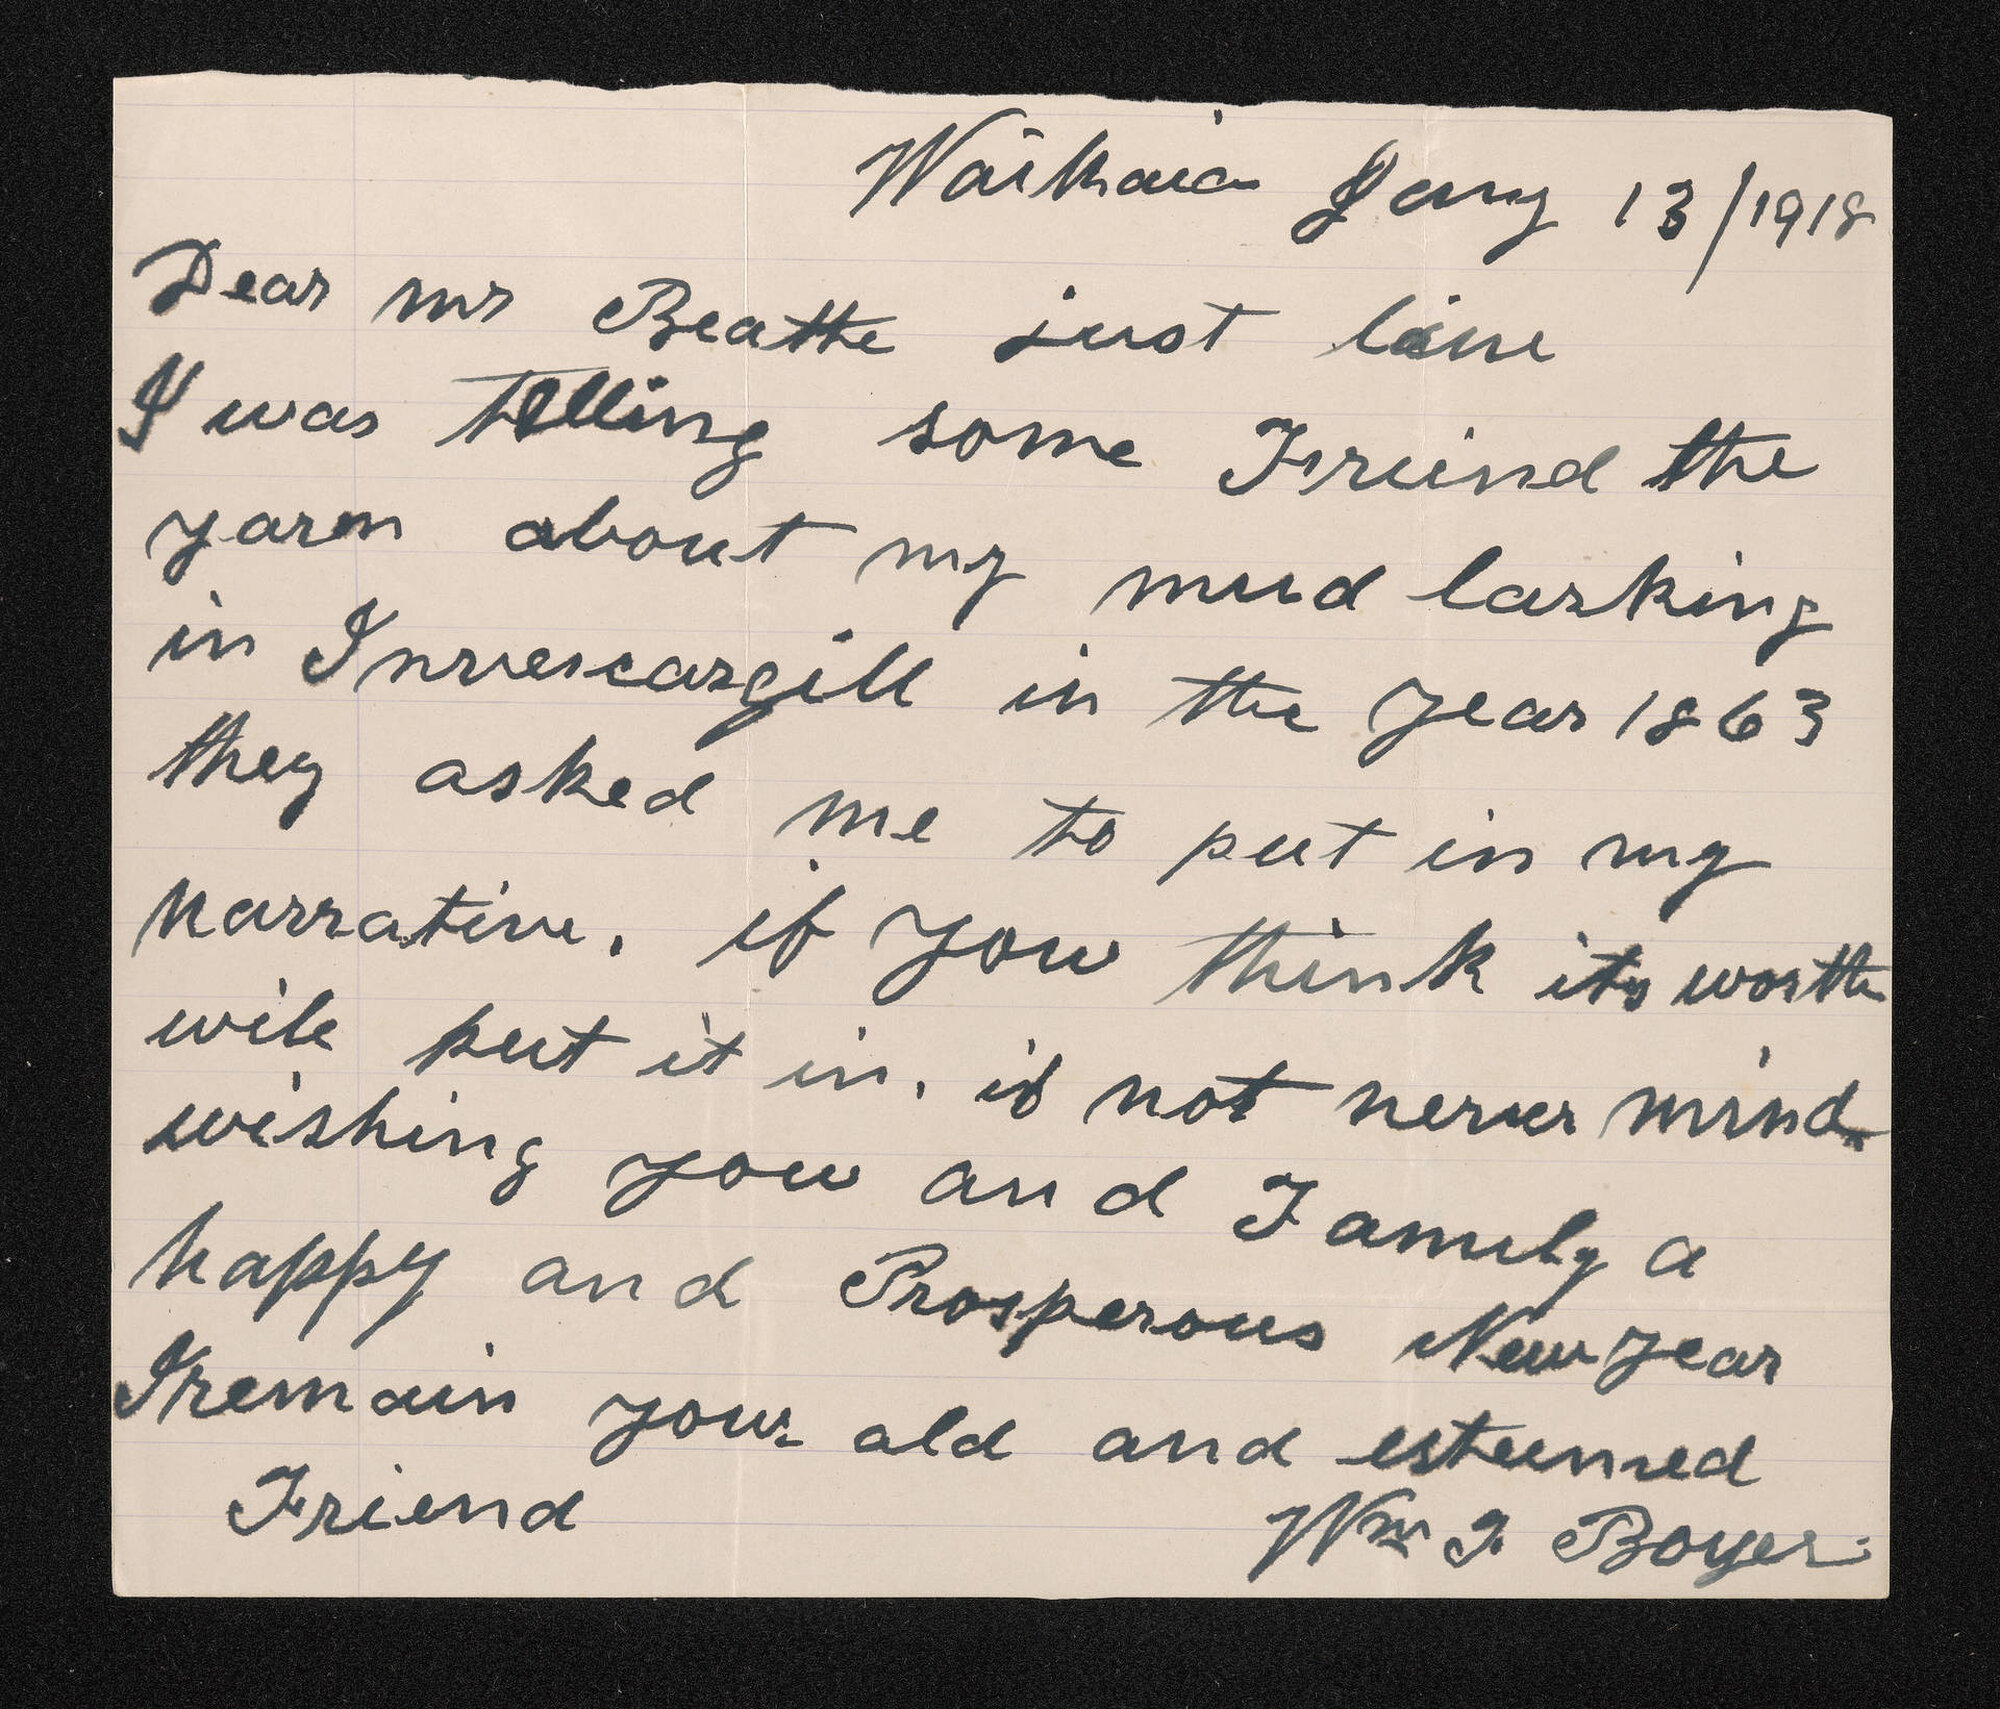 Waikaia Jany 13/1918
Dear mr Beatte just line
I was telling some Friend the
yarn about my mud larking
in Invercargill in the year 1863
they asked me to put in my
narrative. if you think its worth
wile put it in. if not never mind
wishing you and Family a
happy and Prosperous New year
I remain your old and esteemed
Friend Wm J. Boyer